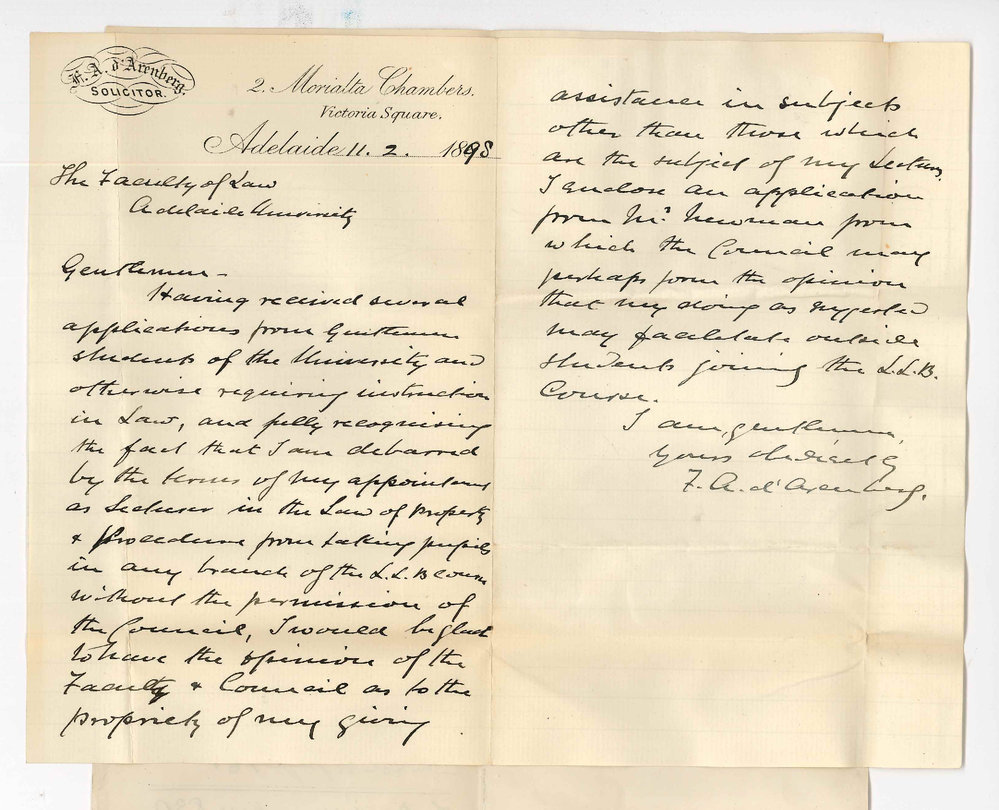 F. A. d'Arenberg.
SOLICITOR.
2. Morialta Chambers.
Victoria Square.
Adelaide 11. 2. 1898
The Faculty of Law
Adelaide University
Gentlemen -
Having received several
applications from Gentlemen
students of the University and
otherwise requiring instruction
in Law, and fully recognising
the fact that I am debarred
by the terms of my appointment
as Lecturer in the Law of Property
& Procedure from taking pupils
in any branch of the L.L.B course
without the permission of
the Council, I would be glad
to have the opinion of the
Faculty & Council as to the
propriety of my giving
assistance in subjects
other than those which
are the subject of my Lectures.
I enclose an application
from Mr. Newman from
which the Council may
perhaps form the opinion
that my doing as suggested
may facilitate outside
students joining the L.L.B.
Course.
I am, gentlemen,
Yours obediently
F. A. d'Arenberg.